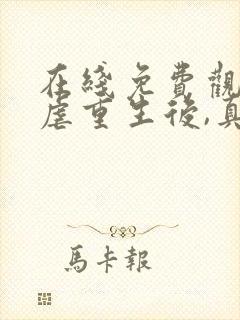 在綫免費觀
虐重生後,真
馬卡報